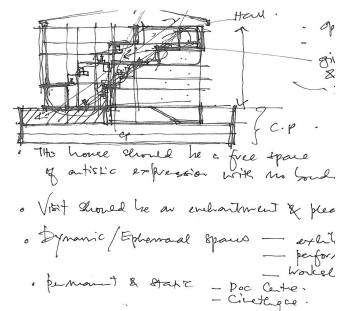 Hall.
C.P.
CP
• This house should be a free space
of artistic expression with no bound
• Visit should be an enchantment & plea
• Dynamic/Ephemeral spaces — exhib
— perfor
— worksh
• permanent & static — Doc Centre.
— Cinetheque.